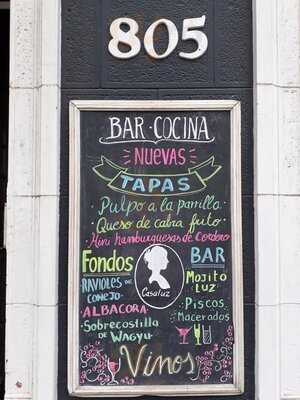 805
BAR·COCINA
NUEVAS
TAPAS
·Pulpo a la parrilla
·Queso de cabra frito·
·Mini Hamburguesas de Cordero
Fondos
RAVIOLES DE
CONEJO
·ALBACORA·
·Sobrecostilla
de Wagyu·
Casaluz
BAR
Mojito
LUZ
·Piscos
Macerados
Vinos